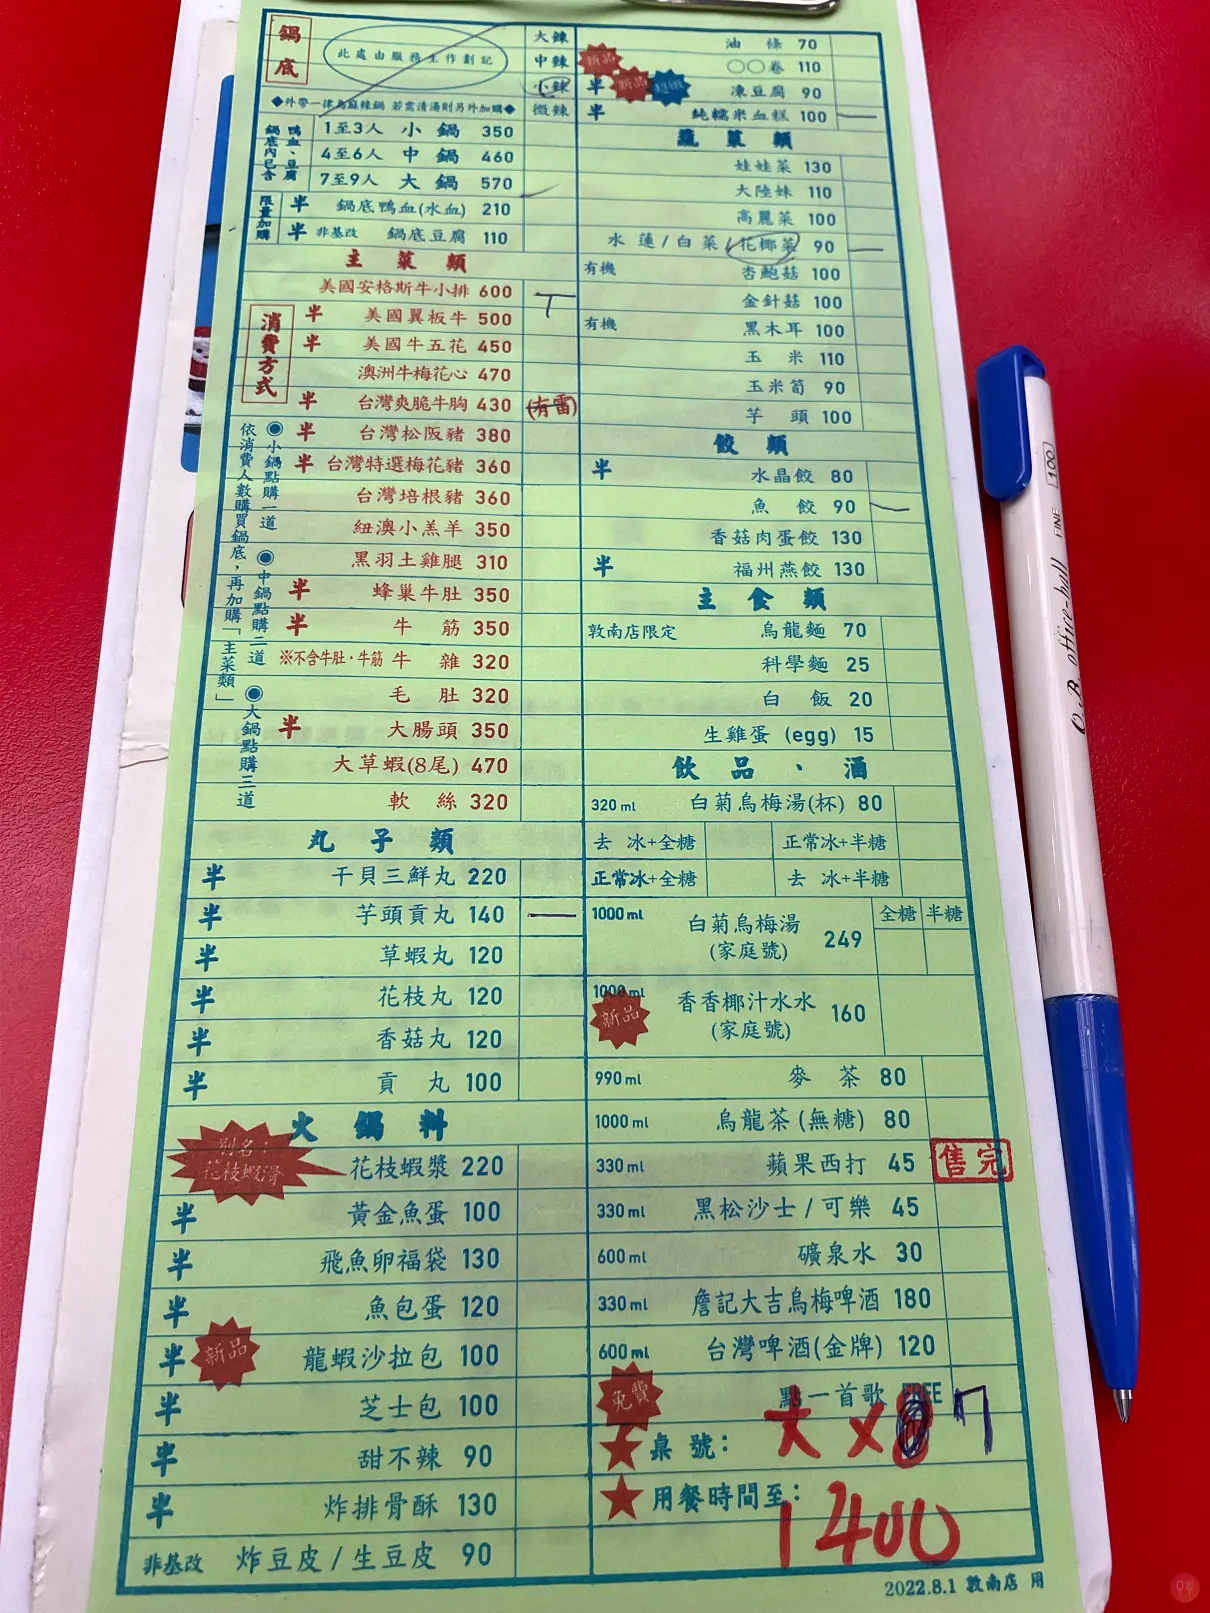 鍋底
此處由服務生作劃記
大辣
中辣
小辣
微辣
◆外帶一律為麻辣鍋 若需清湯則另外加購◆
鍋底內已含
鴨血、豆腐
1至3人 小鍋 350
4至6人 中鍋 460
7至9人 大鍋 570
限量加購
半 鍋底鴨血(水血) 210
半 非基改 鍋底豆腐 110
主菜類
消費方式
◉小鍋點購一道 ◉中鍋點購二道 ◉大鍋點購三道
依消費人數購買鍋底,再加購「主菜類」
美國安格斯牛小排 600 T
半 美國翼板牛 500
半 美國牛五花 450
澳洲牛梅花心 470
半 台灣爽脆牛胸 430 (有雷)
半 台灣松阪豬 380
半 台灣特選梅花豬 360
台灣培根豬 360
紐澳小羔羊 350
黑羽土雞腿 310
半 蜂巢牛肚 350
半 牛筋 350
※不含牛肚.牛筋 牛雜 320
毛肚 320
半 大腸頭 350
大草蝦(8尾) 470
軟絲 320
丸子類
半 干貝三鮮丸 220
半 芋頭貢丸 140 一
半 草蝦丸 120
半 花枝丸 120
半 香菇丸 120
半 貢丸 100
火鍋料
別名:花枝蝦滑
花枝蝦漿 220
半 黃金魚蛋 100
半 飛魚卵福袋 130
半 魚包蛋 120
半 新品 龍蝦沙拉包 100
半 芝士包 100
半 甜不辣 90
半 炸排骨酥 130
非基改 炸豆皮/生豆皮 90
油條 70
新品 〇〇卷 110
半 新品 凍豆腐 90
半 純糯米血糕 100 一
蔬菜類
娃娃菜 130
大陸妹 110
高麗菜 100
水蓮/白菜/花椰菜 90 一
有機 杏鮑菇 100
金針菇 100
有機 黑木耳 100
玉米 110
玉米筍 90
芋頭 100
餃類
半 水晶餃 80
魚餃 90 一
香菇肉蛋餃 130
半 福州燕餃 130
主食類
敦南店限定 烏龍麵 70
科學麵 25
白飯 20
生雞蛋 (egg) 15
飲品、酒
320 ml 白菊烏梅湯(杯) 80
去冰+全糖 正常冰+半糖
正常冰+全糖 去冰+半糖
1000 ml 白菊烏梅湯(家庭號) 249 全糖 半糖
1000 ml 新品 香香椰汁水水(家庭號) 160
990 ml 麥茶 80
1000 ml 烏龍茶(無糖) 80
330 ml 蘋果西打 45 售完
330 ml 黑松沙士/可樂 45
600 ml 礦泉水 30
330 ml 詹記大吉烏梅啤酒 180
600 ml 台灣啤酒(金牌) 120
免費 點一首歌 FREE
★桌號: 大 x 7
★用餐時間至: 1400
2022.8.1 敦南店 用
O.B. office-ball FINE 100